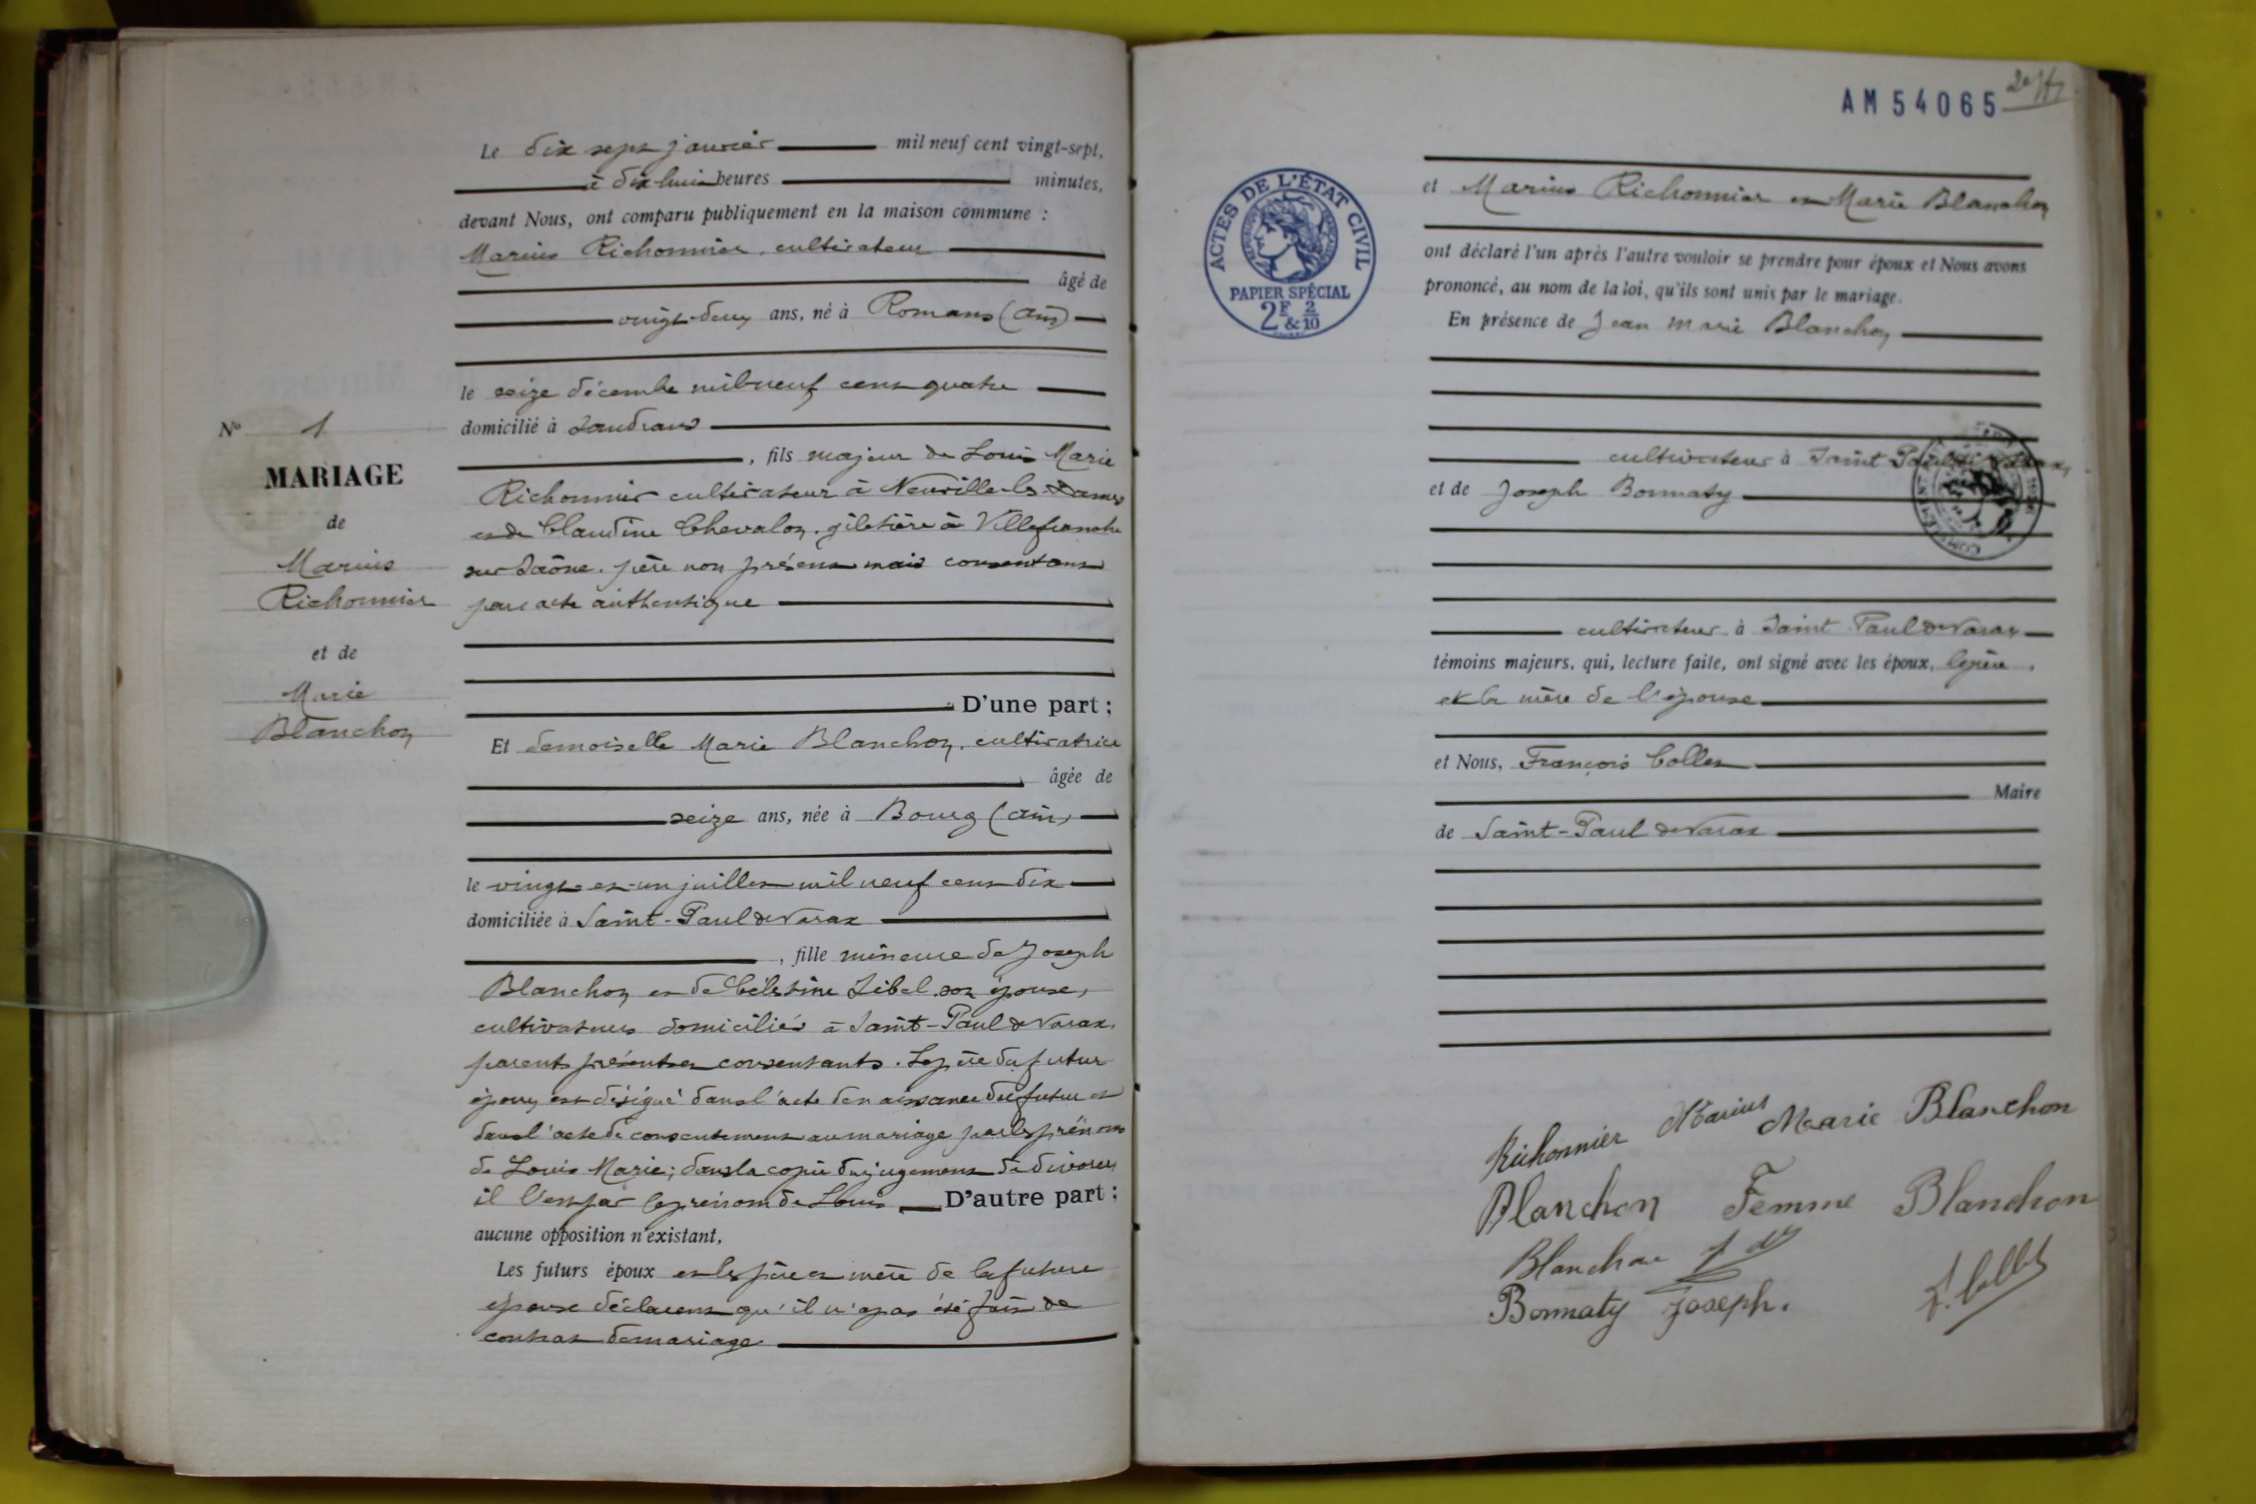 Le dix sept janvier mil neuf cent vingt-sept,
à dix huit heures minutes,
devant Nous, ont comparu publiquement en la maison commune :
Marius Richonnier, cultivateur
âgé de
vingt-deux ans, né à Romans (Ain)
le seize décembre mil neuf cent quatre
domicilié à Sandrans
, fils majeur de Louis Marie
Richonnier cultivateur à Neuville-les-Dames
et de Claudine Chevalon, giletière à Villefranche
sur Saône. père non présent mais consentant
par acte authentique
D'une part ;
Et demoiselle Marie Blanchon, cultivatrice
âgée de
seize ans, née à Bourg (Ain)
le vingt-et-un juillet mil neuf cent dix
domiciliée à Saint-Paul de Varax
, fille mineure de Joseph
Blanchon et de Célestine Libel son épouse,
cultivateurs domiciliés à Saint-Paul de Varax,
parents présents et consentants. Le père du futur
époux est désigné dans l'acte de naissance du futur et
dans l'acte de consentement au mariage par les prénoms
de Louis Marie ; dans la copie du jugement de divorce
il l'est par le prénom de Louis D'autre part ;
aucune opposition n'existant,
Les futurs époux et les père et mère de la future
épouse déclarent qu'il n'a pas été fait de
contrat de mariage
No 1
MARIAGE
de
Marius
Richonnier
et de
Marie
Blanchon
AM 54065
ACTES DE L'ÉTAT CIVIL
PAPIER SPÉCIAL
2F & 2/10
et Marius Richonnier et Marie Blanchon
ont déclaré l'un après l'autre vouloir se prendre pour époux et Nous avons
prononcé, au nom de la loi, qu'ils sont unis par le mariage.
En présence de Jean Marie Blanchon
cultivateur à Saint Paul de Varax,
et de Joseph Bonnaty
cultivateur à Saint Paul de Varax
témoins majeurs, qui, lecture faite, ont signé avec les époux, le père,
et la mère de l'épouse
et Nous, François Collet
Maire
de Saint-Paul de Varax
Richonnier Marius Marie Blanchon
Blanchon Femme Blanchon
Blanchon
Bonnaty Joseph. F. Collet